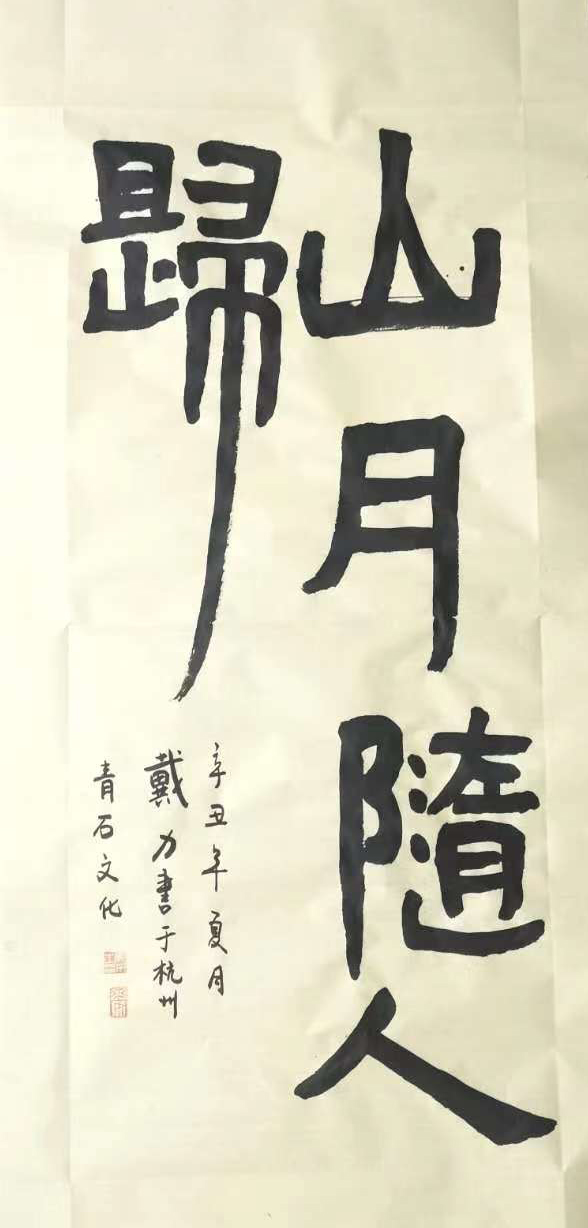 山月隨人
歸
辛丑年夏月
戴力書于杭州
青石文化